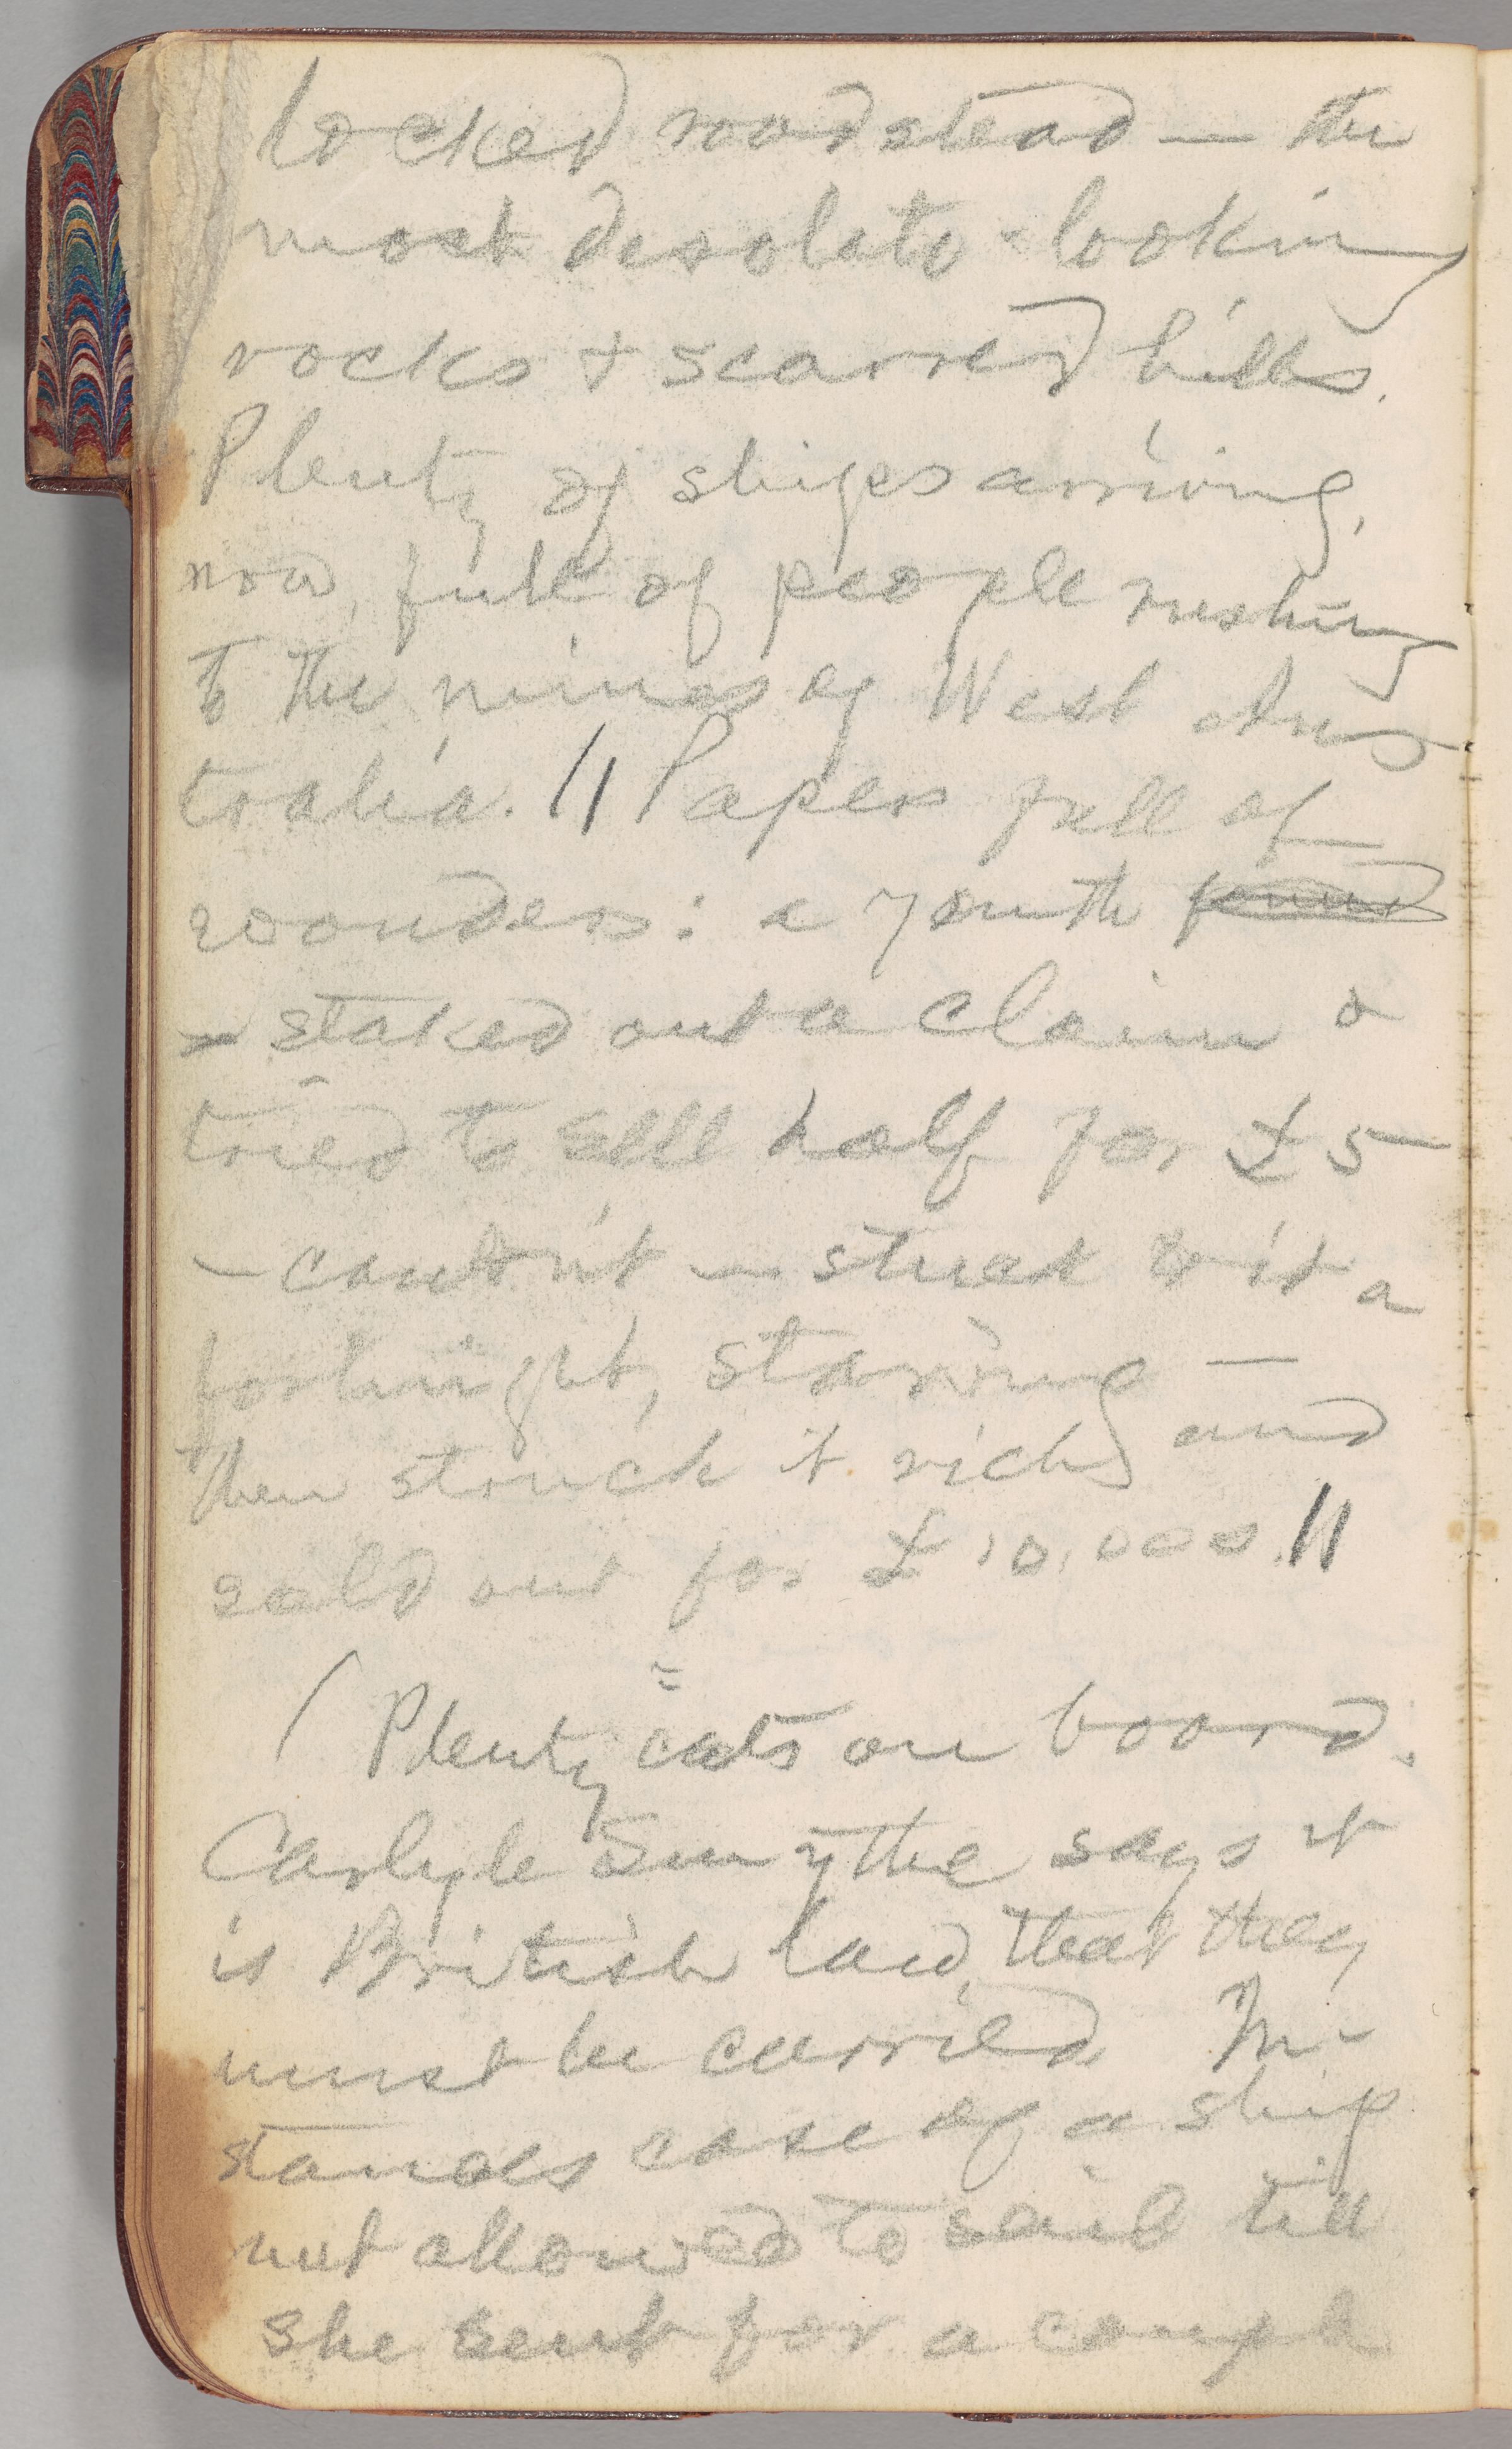 locked roadstead — the
most desolate-looking
rocks & scarred hills.
Plenty of ships arriving,
now, full of people rushing
to the mines of West Aus
tralia. // Papers full of
wonders: a youth found
— staked out a claim &
tried to sell half for £5
— couldn't — stuck to it a
fortnight, starving —
then struck it rich and
sold out for £10,000. //
( Plenty cats on board.
Carlyle Smythe says it
is British law, that they
must be carried. In-
stances case of a ship
not allowed to sail till
she sent for a couple